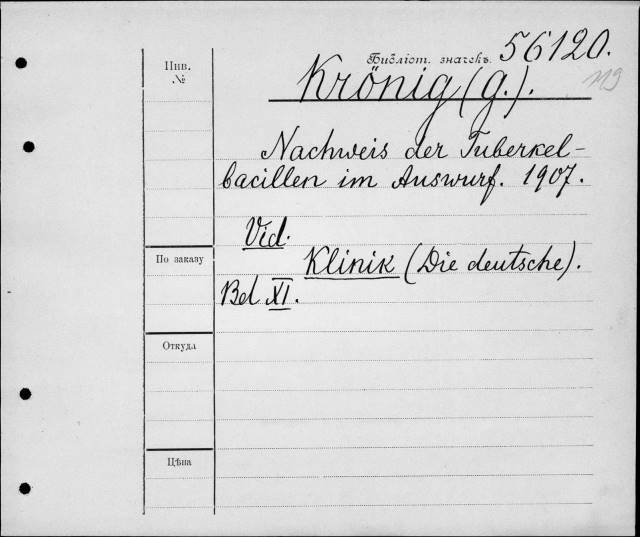 Инв.
№
Библіот. значекъ.
56120.
119
Krönig (G.).
Nachweis der Tuberkel-
bacillen im Auswurf. 1907.
Vid.
По заказу
Klinik (Die deutsche).
Bd XI.
Откуда
Цѣна